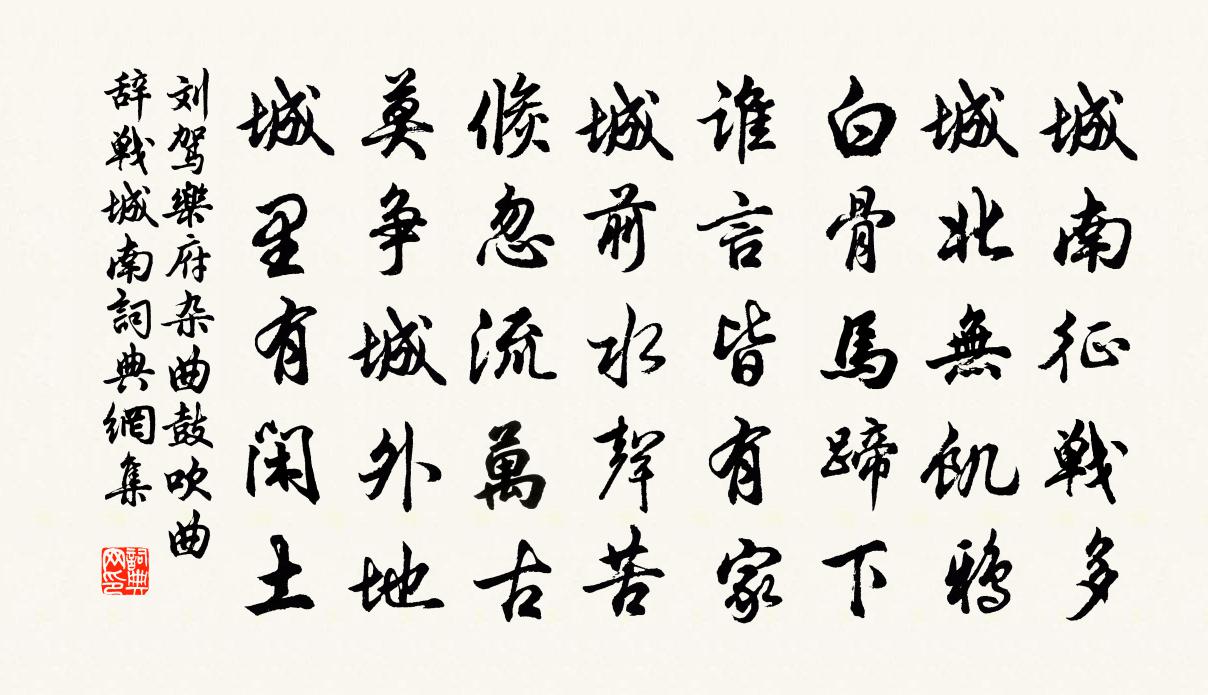 城南征戰多
城北無飢鴉
白骨馬蹄下
誰言皆有家
城前水聲苦
倏忽流萬古
莫爭城外地
城里有閑土
刘驾樂府杂曲鼓吹曲
辞戰城南詞典網集
詞典
网印